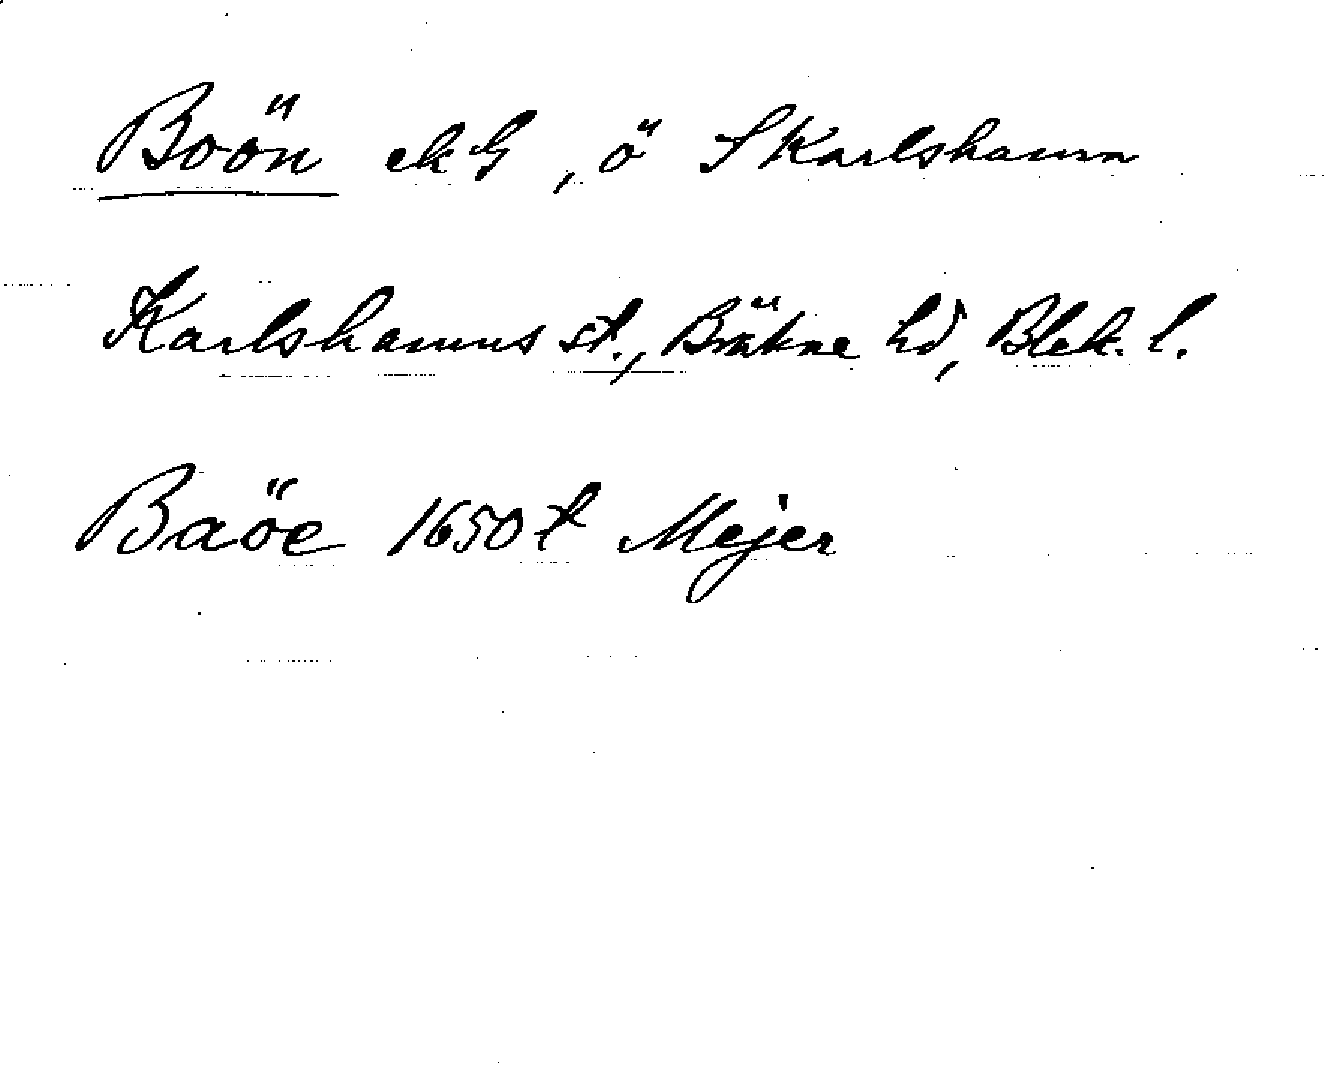 Boön ekG, ö S Karlshamn
Karlshamns st., Bräkne hd, Blek. l.
Baöe 1650 t Mejer